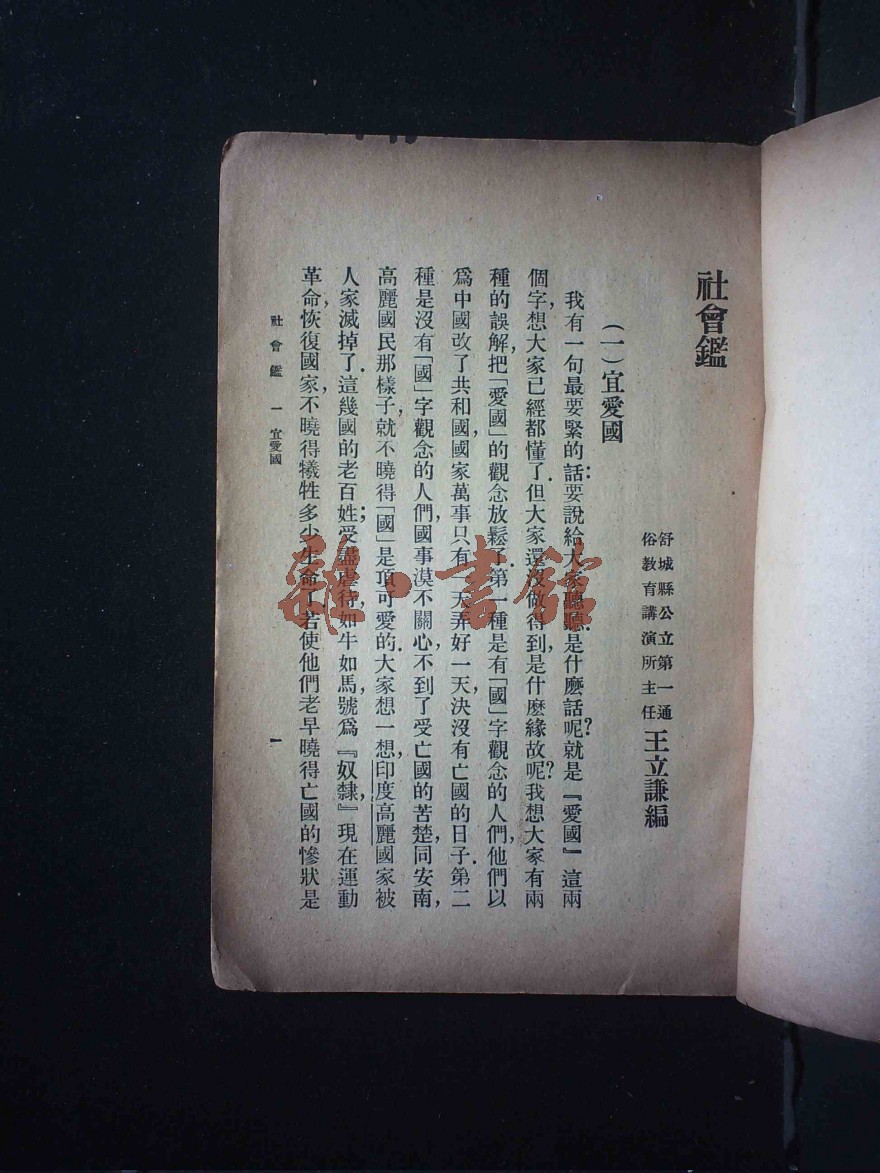 社會鑑
舒城縣公立第一通
俗教育講演所主任
王立謙編
（一）宜愛國
我有一句最要緊的話：要說給大家聽聽．是什麽話呢？就是『愛國』這兩
個字，想大家已經都懂了．但大家還沒做得到，是什麽緣故呢？我想大家有兩
種的誤解，把「愛國」的觀念放鬆了．第一種是有「國」字觀念的人們，他們以
爲中國改了共和國，國家萬事只有一天弄好一天，決沒有亡國的日子．第二
種是沒有「國」字觀念的人們，國事漠不關心，不到了受亡國的苦楚，同安南，
高麗國民那樣子，就不曉得「國」是頂可愛的．大家想一想，印度高麗國家被
人家滅掉了．這幾國的老百姓；受盡虐待，如牛如馬，號爲『奴隸，』現在運動
革命，恢復國家，不曉得犧牲多少生命了．若使他們老早曉得亡國的慘狀是
社會鑑 一 宜愛國
一
雜·書館